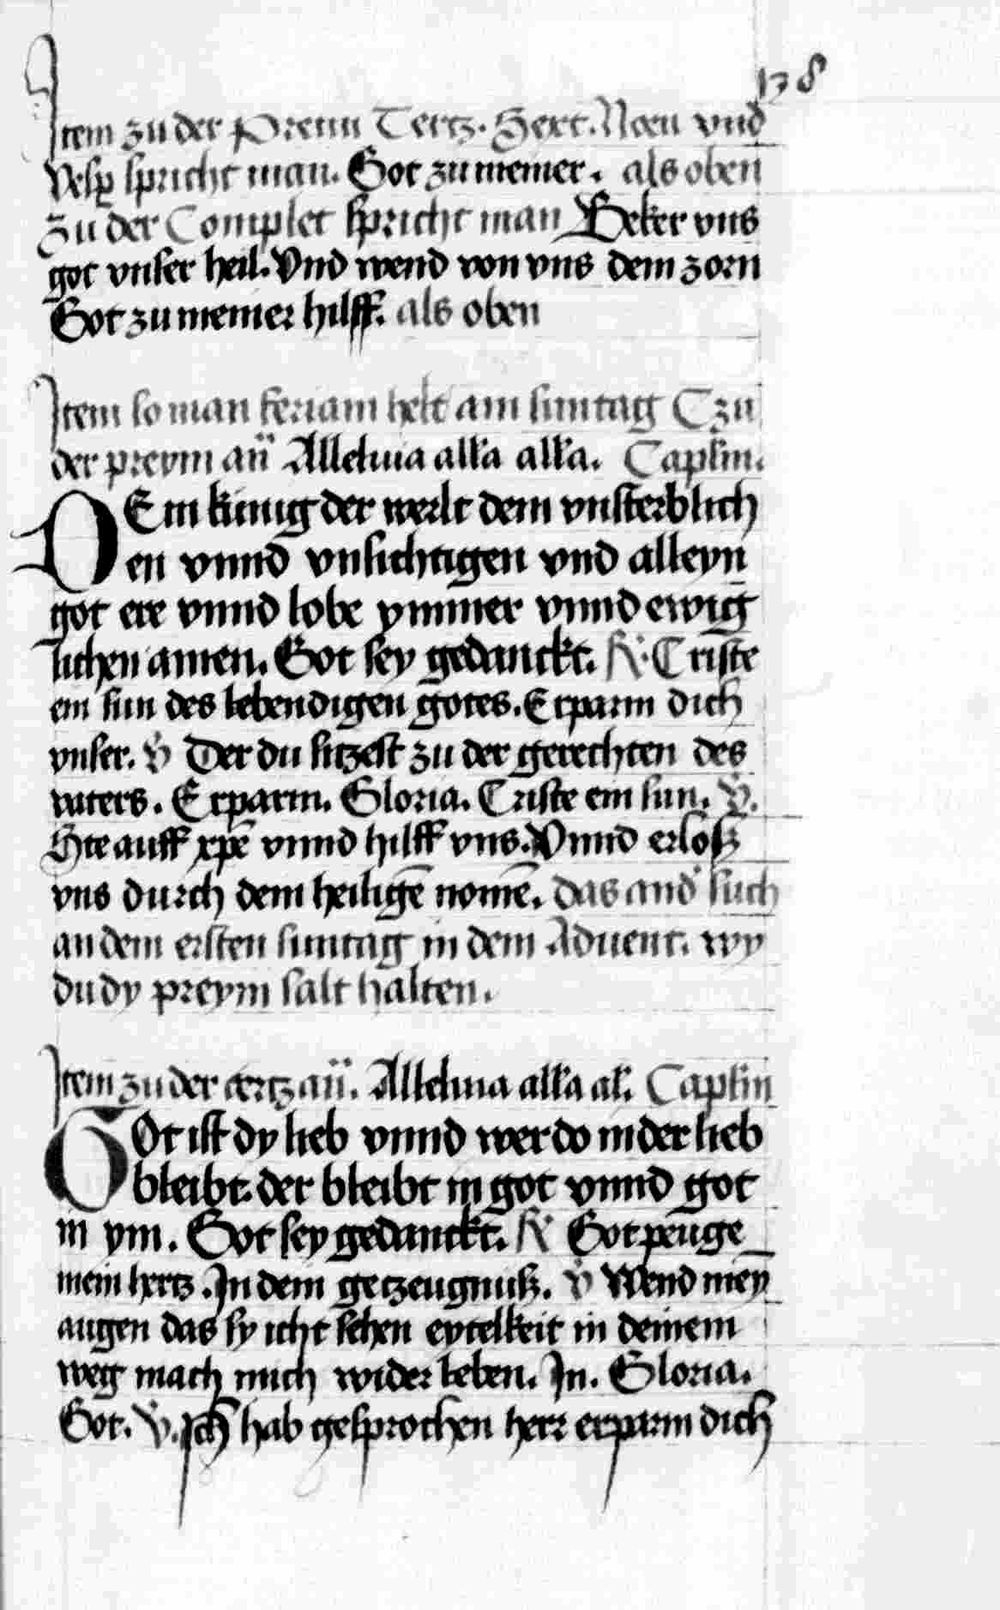 138
Item zu der Preim Tertz. Sext. Noen vnd
Vesp spricht man. Got zu meiner. als oben
Zu der Complet spricht man Beker vns
got vnser heil. Vnd wend von vns dein zorn
Got zu meiner hilff. als oben
Item so man feriam helt am suntag Czu
der preym an̄ Alleluia alla alla. Capl'm.
DEm kunig der werlt dem vnsterblich
en vnnd vnsichtigen vnd alleyn
got ere vnnd lobe ymmer vnnd ewig
lichen amen. Got sey gedanckt. ℟. Criste
ein sun des lebendigen gotes. Erparm dich
vnser. ℣ Der du sitzest zu der gerechten des
vaters. Erparm. Gloria. Criste ein sun. ℣.
Ste auff xpē vnnd hilff vns. Vnnd erloß
vns durch dein heiligē nomē. das and' such
an dem ersten suntag in dem Aduent. wy
du dy preym salt halten.
Item zu der tertz an̄. Alleluia alla al'. Capl'm
GOt ist dy lieb vnnd wer do in der lieb
bleibt. der bleibt in got vnnd got
in ym. Got sey gedanckt. ℟ Got peuge
mein hertz. In dein getzeugnuß. ℣ Wend mey
augen das sy icht sehen eytelkeit in deinem
weg mach mich wider leben. In. Gloria.
Got. ℣. Ich hab gesprochen herr erparm dich